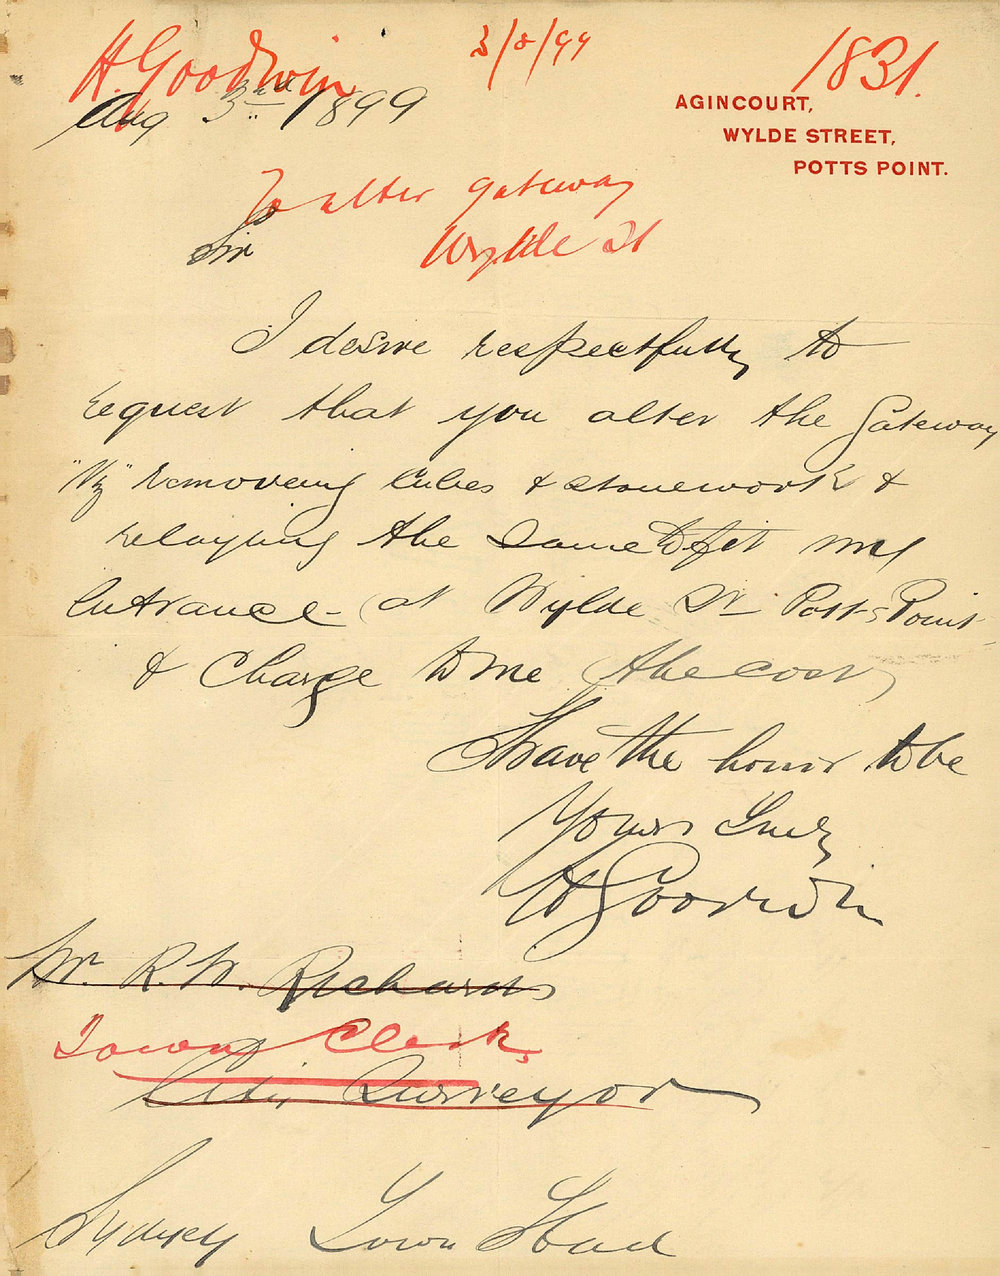 H. Goodwin 3/8/99 1831.
Aug 3rd 1899
AGINCOURT,
WYLDE STREET,
POTTS POINT.
To alter gateway
Wylde St
Sir
I desire respectfully to
request that you alter the Gateway
"Viz" removing cubes & stonework &
relaying the same to fit my
entrance (at Wylde St Potts Point
& Charge to me the cost
I have the honor to be
Yours Truly
H Goodwin
Mr. R. W. Richards
Town Clerk,
City Surveyor
Sydney Town Hall